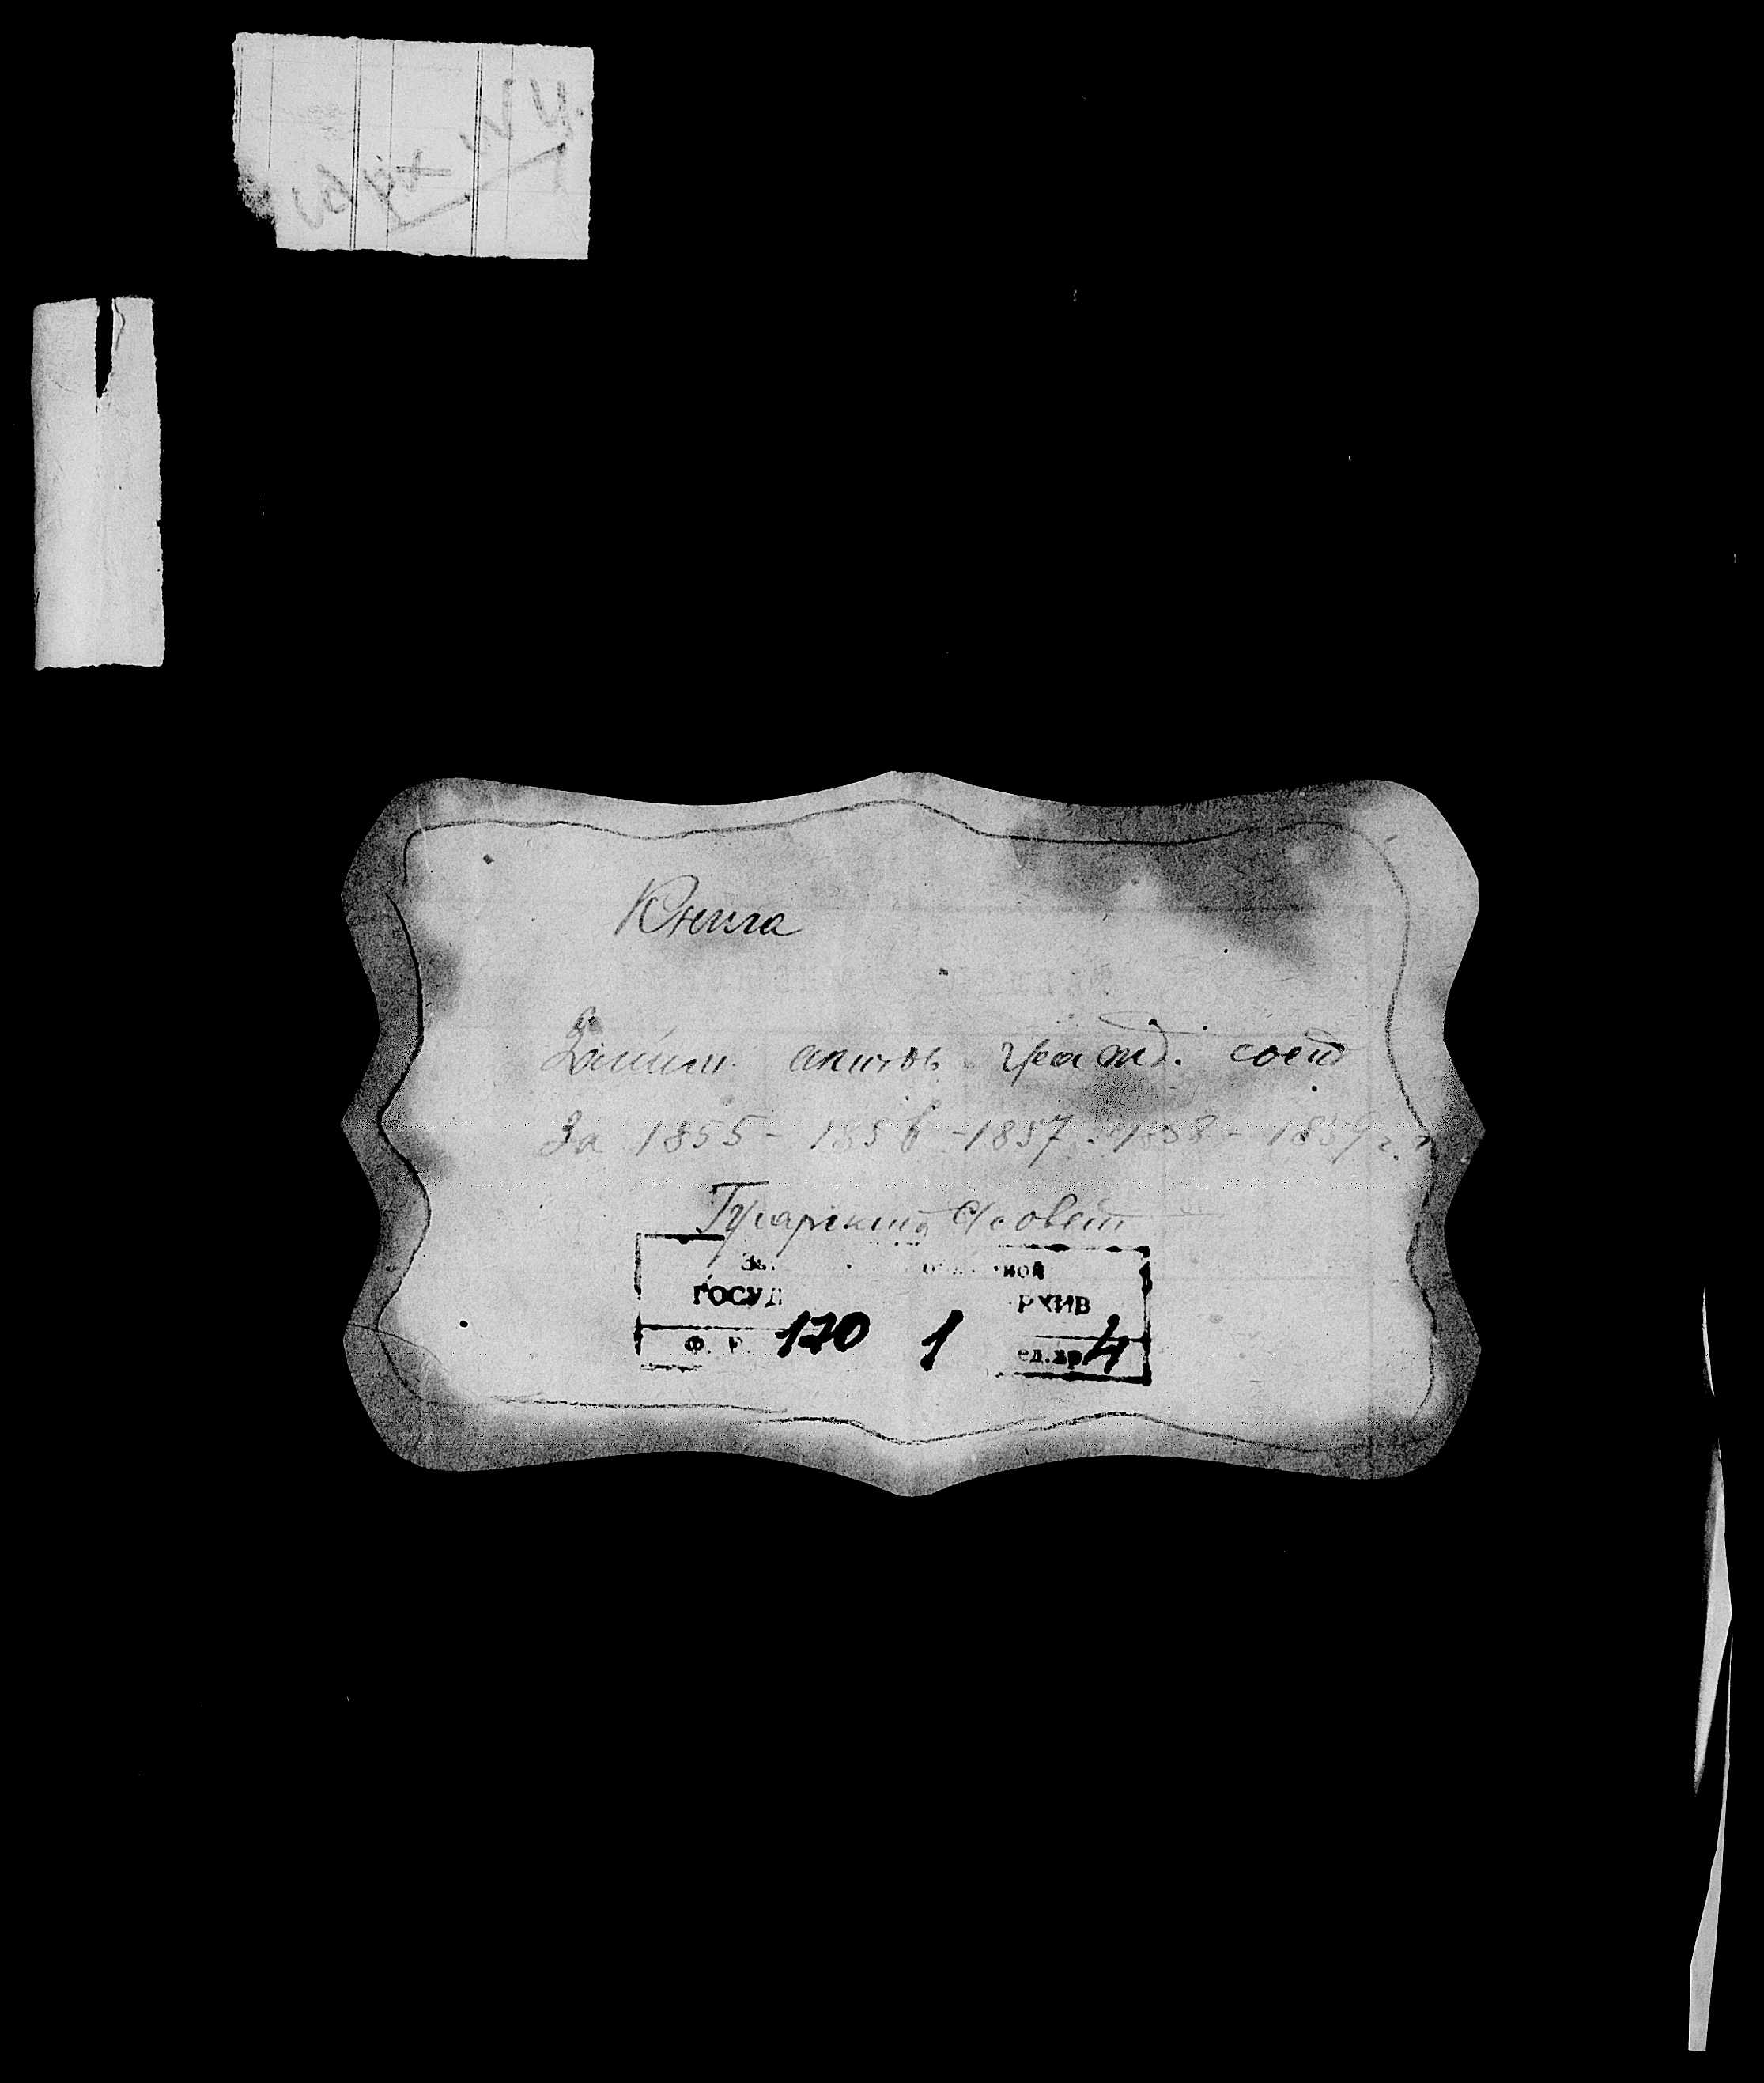 Книга
Записи актовъ гражд. сост
За 1855 - 1856 - 1857 - 1858 - 1859 г.г.
Гусарский Совет
ной
ГОСУД РХИВ
Ф. 170 1 ед.хр 4